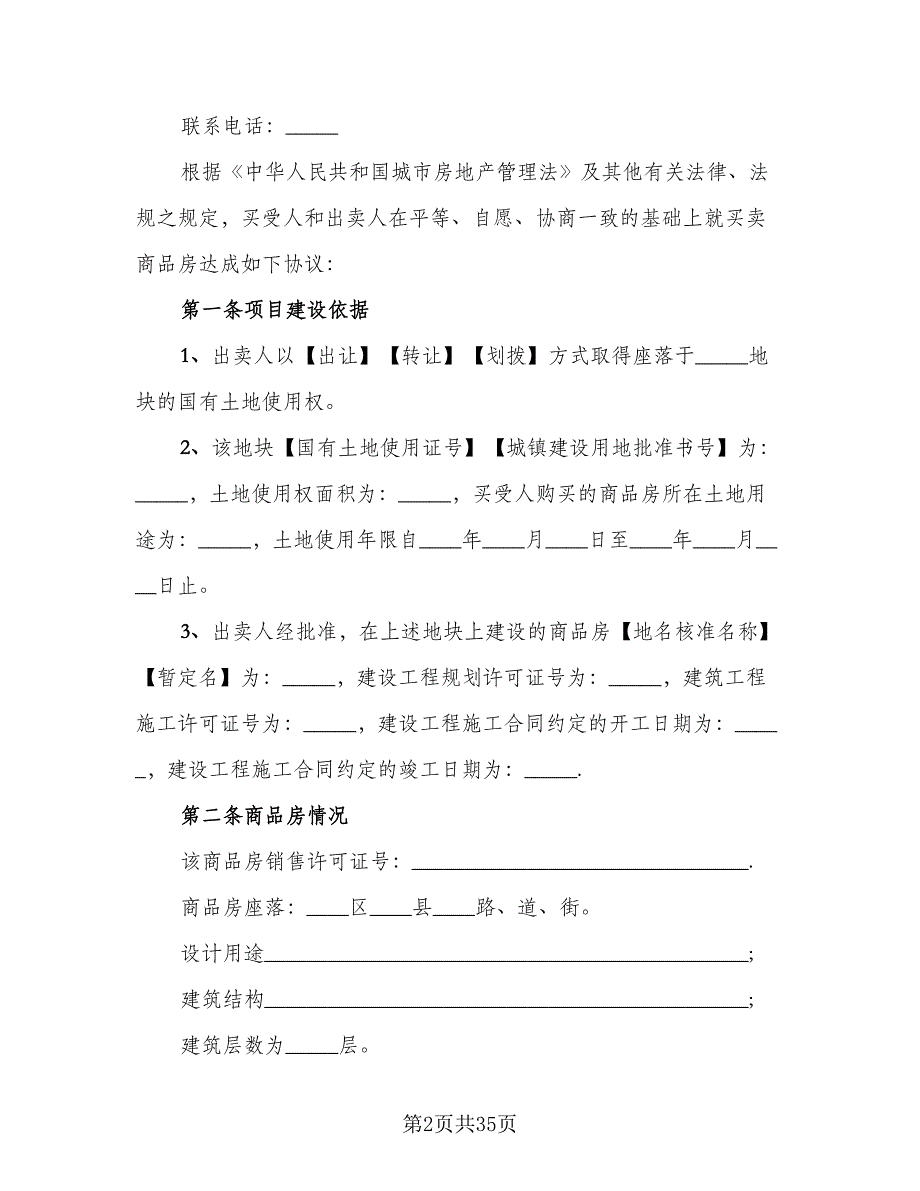 联系电话：_____
根据《中华人民共和国城市房地产管理法》及其他有关法律、法
规之规定，买受人和出卖人在平等、自愿、协商一致的基础上就买卖
商品房达成如下协议：
第一条项目建设依据
1、出卖人以【出让】【转让】【划拨】方式取得座落于_____地
块的国有土地使用权。
2、该地块【国有土地使用证号】【城镇建设用地批准书号】为：
_____，土地使用权面积为：_____，买受人购买的商品房所在土地用
途为：_____，土地使用年限自____年____月____日至____年____月__
__日止。
3、出卖人经批准，在上述地块上建设的商品房【地名核准名称】
【暂定名】为：_____，建设工程规划许可证号为：_____，建筑工程
施工许可证号为：_____，建设工程施工合同约定的开工日期为：____
_，建设工程施工合同约定的竣工日期为：_____.
第二条商品房情况
该商品房销售许可证号：________________________________.
商品房座落：____区____县____路、道、街。
设计用途______________________________________________;
建筑结构______________________________________________;
建筑层数为_____层。
第2页共35页